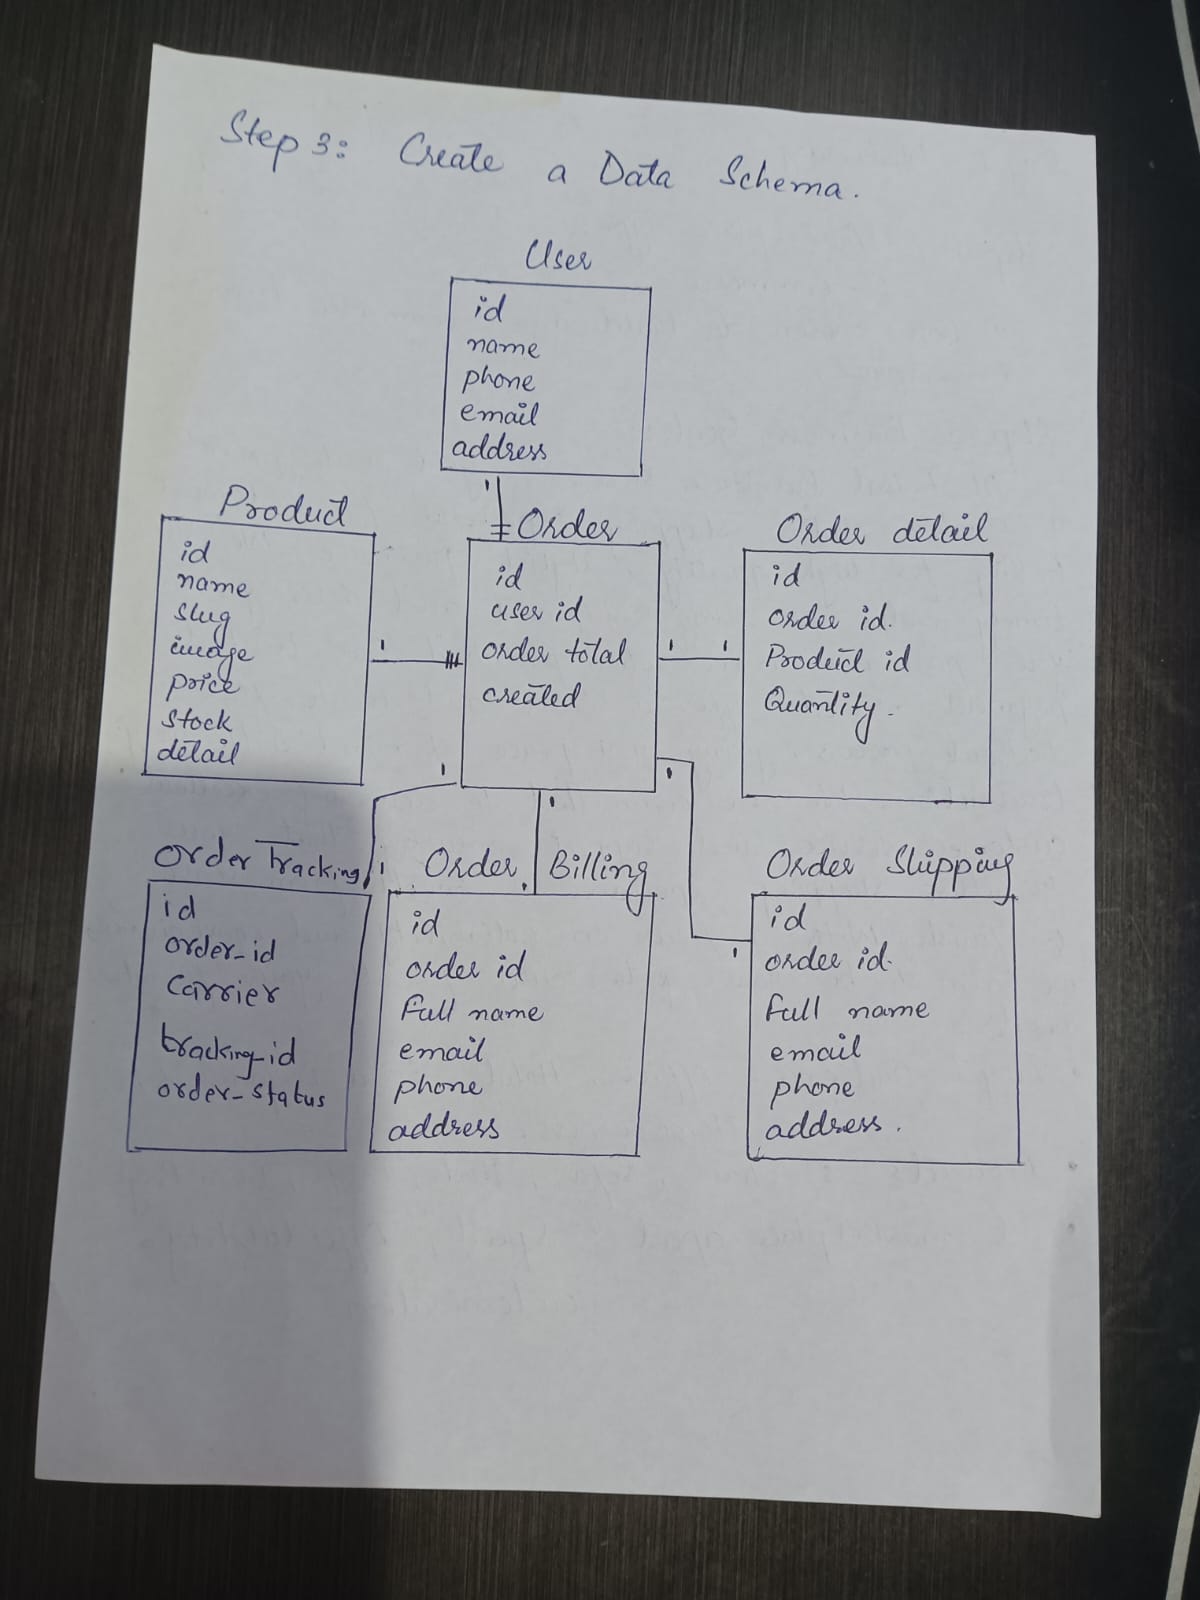 Step 3: Create a Data Schema.
User
id
name
phone
email
address
Product
id
name
slug
image
price
stock
detail
Order
id
user id
order total
created
Order detail
id
order id.
Product id
Quantity.
Order Tracking
id
order-id
Carrier
tracking-id
order-status
Order Billing
id
order id
Full name
email
phone
address
Order Shipping
id
order id.
Full name
email
phone
address.